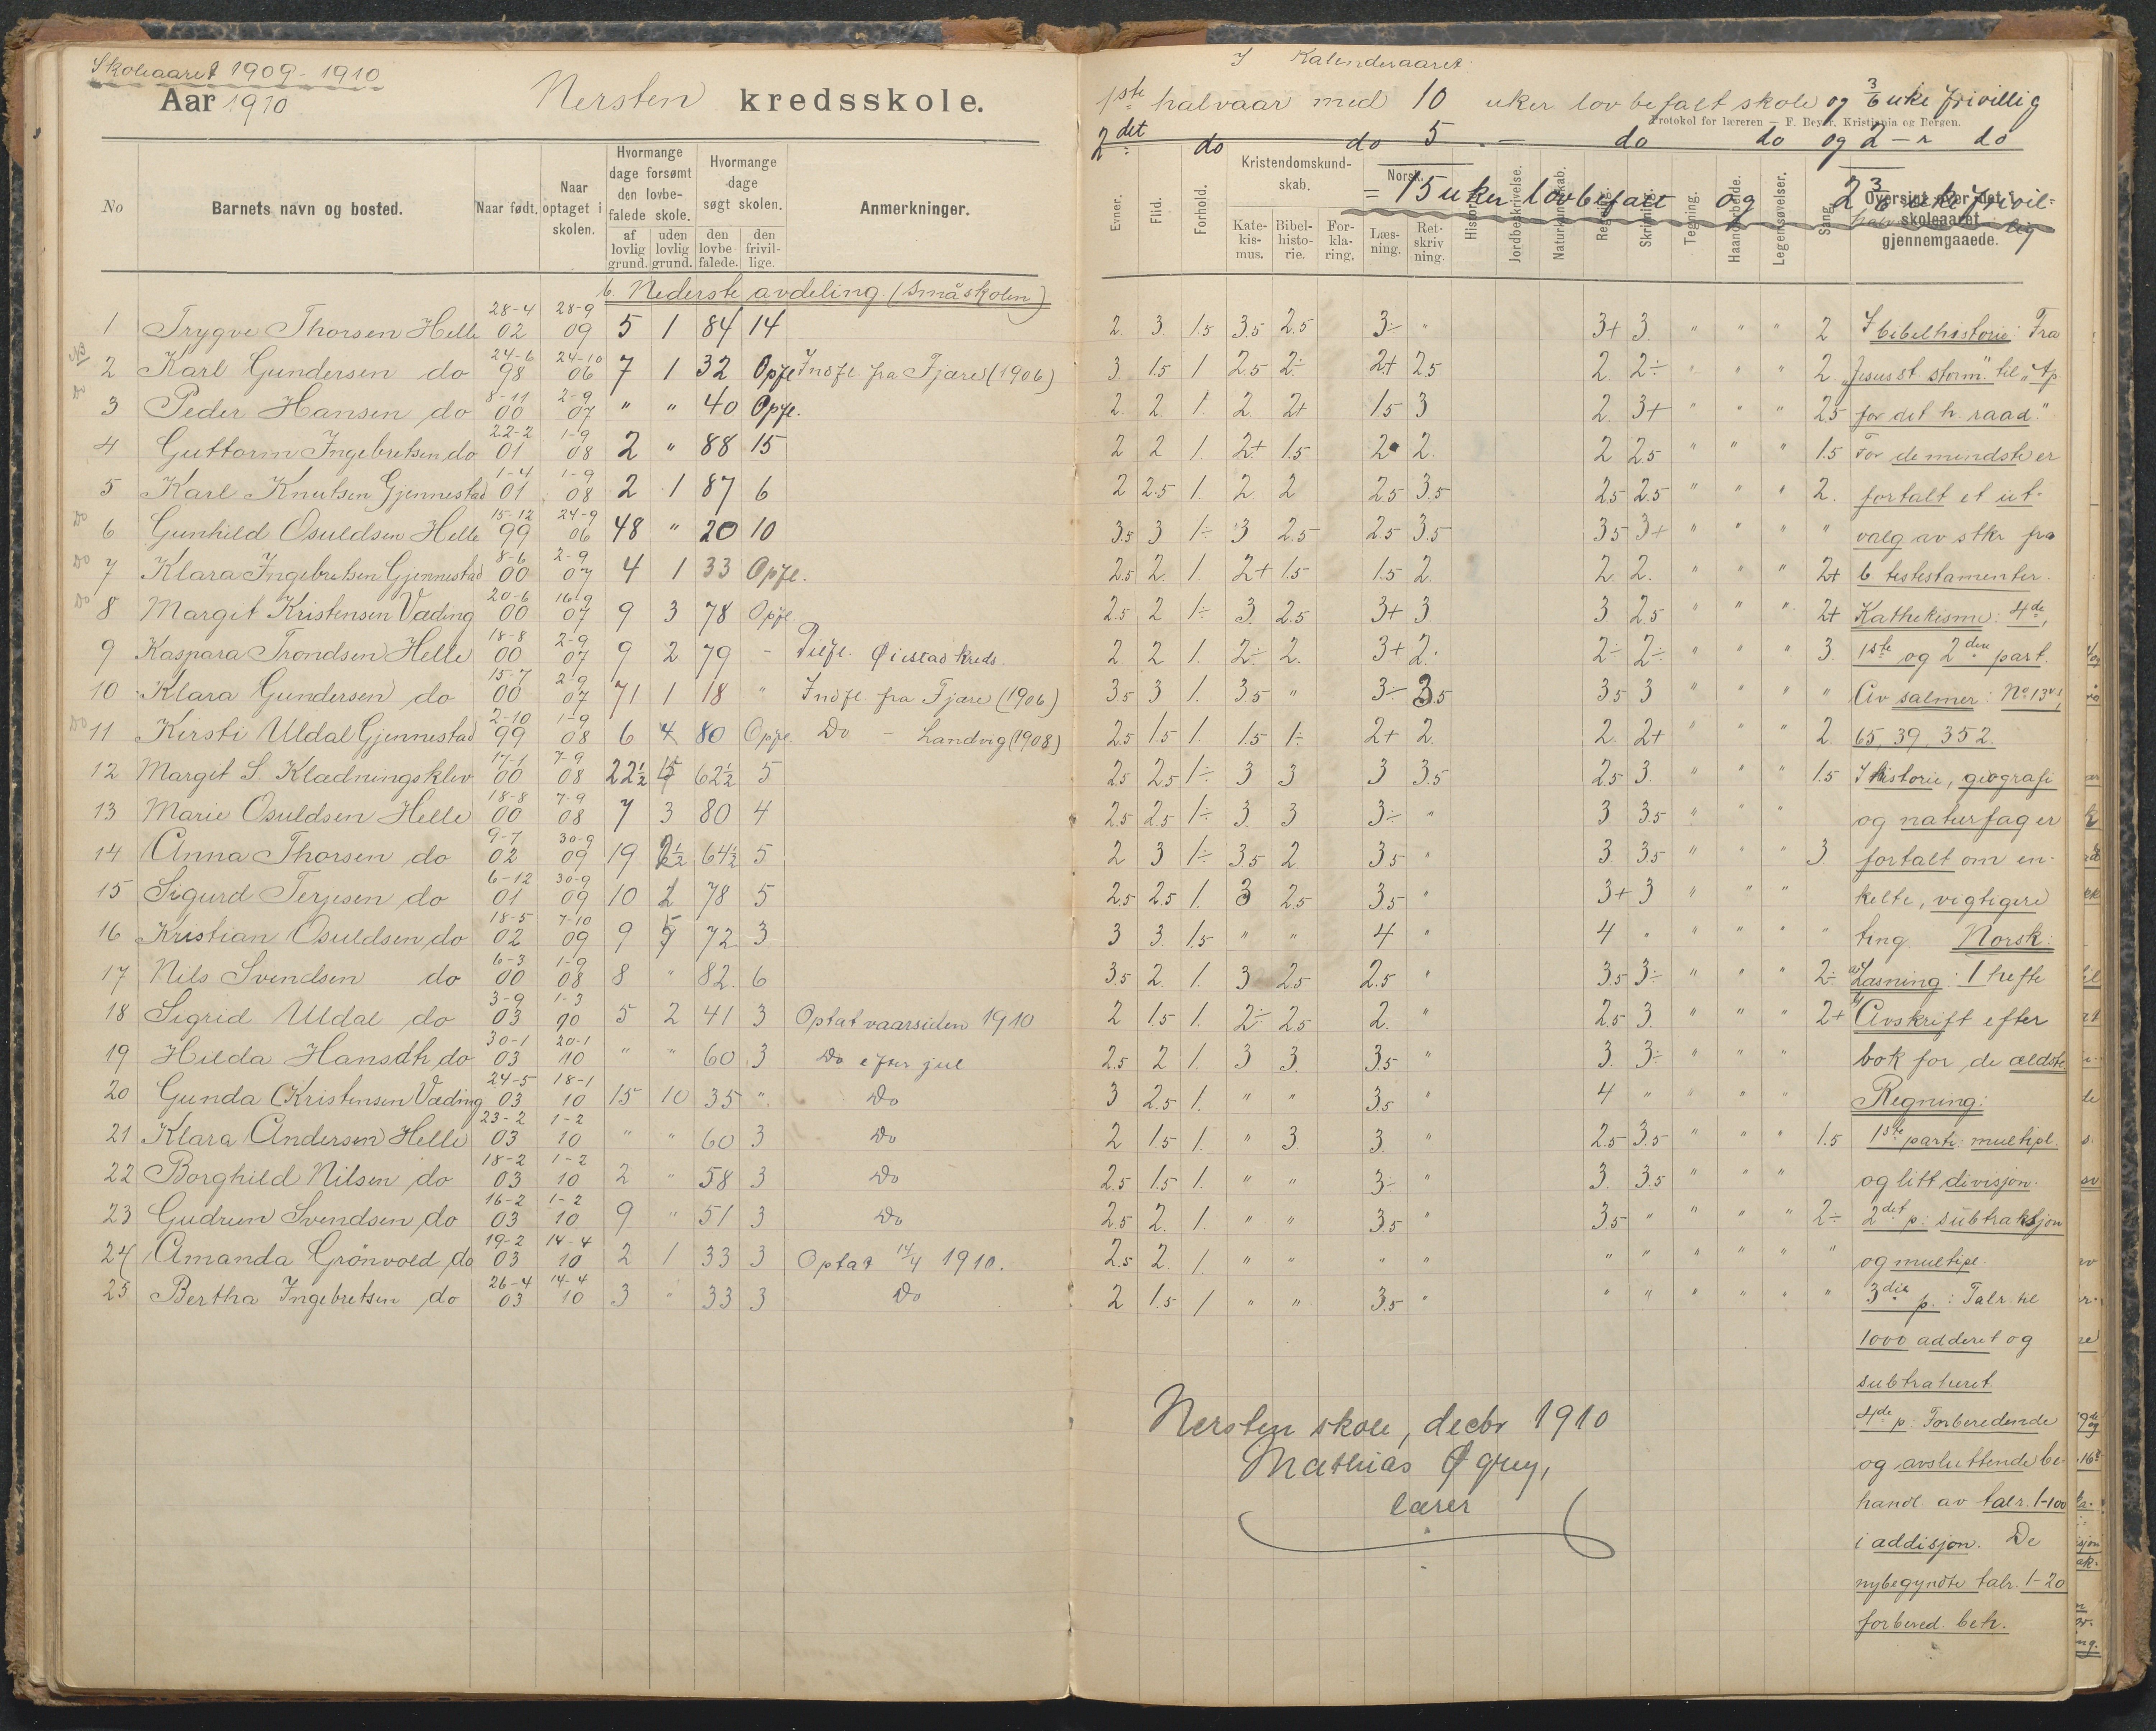 Skoleaaret 1909-1910
Aar 1910
Nersten kredsskole.
No
Barnets navn og bosted.
Naar født.
Naar optaget i skolen.
Hvormange dage forsømt den lovbefalede skole.
af lovlig grund.
uden lovlig grund.
Hvormange dage søgt skolen.
den lovbefalede.
den frivillige.
Anmerkninger.
b. Nederste avdeling. (Småskolen)
1 Trygve Thorsen Helle 28-4 02 28-9 09 5 1 84 14
NB 2 Karl Gundersen do 24-6 98 24-10 06 7 1 32 Opfl. Indfl. fra Fjære (1906)
Do 3 Peder Hansen do 8-11 00 2-9 07 " " 40 Opfl.
4 Guttorm Ingebretsen do 22-2 01 1-9 08 2 " 88 15
5 Karl Knutsen Gjennestad 1-4 01 1-9 08 2 1 87 6
Do 6 Gunhild Osuldsen Helle 15-12 99 24-9 06 48 " 20 10
Do 7 Klara Ingebretsen Gjennestad 8-6 00 2-9 07 4 1 33 Opfl.
Do 8 Margit Kristensen Væding 20-6 00 16-9 07 9 3 78 Opfl.
9 Kaspara Trondsen Helle 18-8 00 2-9 07 9 2 79 - Tilfl. Øiestad kreds.
10 Klara Gundersen do 15-7 00 2-9 07 71 1 18 " Indfl. fra Fjære (1906)
Do 11 Kirsti Uldal Gjennestad 2-10 99 1-9 08 6 4 80 Opfl. Do - Landvig (1908)
12 Margit S. Kladningsklev 17-1 00 7-9 08 22½ 62½ 5
13 Marie Osuldsen Helle 18-8 00 7-9 08 7 3 80 4
14 Anna Thorsen do 9-7 02 30-9 09 19 64½ 5
15 Sigurd Terjesen do 6-12 01 30-9 09 10 2 78 5
16 Kristian Osuldsen do 18-5 02 7-10 09 9 72 3
17 Nils Svendsen do 6-3 00 1-9 08 8 " 82 6
18 Sigrid Uldal do 3-9 03 1-3 10 5 2 41 3 Optat vaarsiden 1910
19 Hilda Hansdtr. do 30-1 03 20-1 10 " " 60 3 Do efter jul
20 Gunda Kristensen Væding 24-5 03 18-1 10 15 10 35 " Do
21 Klara Andersen Helle 23-2 03 1-2 10 " " 60 3 Do
22 Borghild Nilsen do 18-2 03 1-2 10 2 " 58 3 Do
23 Gudrun Svendsen do 16-2 03 1-2 10 9 " 51 3 Do
24 Amanda Grönvold do 19-2 03 14-4 10 2 1 33 3 Optat 14/4 1910.
25 Bertha Ingebretsen do 26-4 03 14-4 10 3 " 33 3 Do
I Kalenderaaret
1ste halvaar med 10 uker lovbefalt skole og 3/6 uke frivillig
Protokol for læreren — F. Beyer. Kristiania og Bergen.
2det do do 5 - do do og 2 - " do
= 15 uker lovbefalt og 2 3/6 uke frivillig
Evner.
Flid.
Forhold.
Kristendomskundskab.
Katekismus.
Bibelhistorie.
Forklaring.
Norsk.
Læsning.
Retskrivning.
Historie.
Jordbeskrivelse.
Naturkundskab.
Regning.
Skrivning.
Tegning.
Haandarbeide.
Legemsøvelser.
Sang.
Oversigt over det i skoleaaret gjennemgaaede.
2. 3. 1.5 3.5 2.5 3÷ " 3+ 3. " " " 2 I bibelhistorie: Fra
3. 1.5 1 2.5 2÷ 2+ 2.5 2. 2÷ " " " 2. "Jesus st. storm." til "Ap.
2. 2. 1. 2. 2+ 1.5 3 2. 3+ " " " 2.5 for det h. raad."
2 2 1 2+ 1.5 2 2. 2 2.5 " " " 1.5 For de mindste er
2 2.5 1. 2 2 2.5 3.5 2.5 2.5 " " " 2. fortalt et ut-
3.5 3 1÷ 3 2.5 2.5 3.5 3.5 3+ " " " " valg av stkr fra
2.5 2. 1. 2+ 1.5 1.5 2. 2. 2. " " " 2+ b. testestamenter.
2.5 2 1÷ 3. 2.5 3+ 3 3 2.5 " " " 2+ Kathekisme: 4de,
2. 2 1. 2÷ 2. 3+ 2. 2÷ 2÷ " " " 3. 1ste og 2den part.
3.5 3 1. 3.5 " 3÷ 3.5 3.5 3 " " " " Av salmer: No 13,
2.5 1.5 1. 1.5 1÷ 2+ 2. 2. 2+ " " 2. 65, 39, 352.
2.5 2.5 1÷ 3 3 3 3.5 2.5 3. " " " 1.5 I historie, geografi
2.5 2.5 1÷ 3. 3 3÷ " 3 3.5 " " " og naturfag er
2 3 1÷ 3.5 2 3.5 " 3. 3.5 " " " 3. fortalt om en-
2.5 2.5 1. 3 2.5 3.5 " 3+ 3 " " " kelte, vigtigere
3 3. 1.5 " " 4 " 4 " " " " " ting. Norsk:
3.5 2. 1. 3 2.5 2.5 " 3.5 3÷ " " " 2÷ a) Læsning: 1 hefte
2 1.5 1. 2÷ 2.5 2. " 2.5 3. " " " 2+ b) Avskrift efter
2.5 2 1. 3 3. 3.5 " 3. 3÷ " " " bok for de ældste
3 2.5 1. " " 3.5 " 4 " " " " Regning:
2 1.5 1. " 3 3. " 2.5 3.5 " " " 1.5 1ste parti: multipl.
2.5 1.5 1. " " 3÷ " 3. 3.5 " " " og litt divisjon.
2.5 2. 1. " " 3.5 " 3.5 " " " " 2÷ 2det p: subtraksjon
2.5 2. 1. " " " " " " " " " " og multipl.
2 1.5 1 " " 3.5 " " " " " " " 3die p.: Talr. til
1000 adderet og
subtraheret.
4de p: Forberedende
og avsluttende be-
handl. av talr. 1-100
i addisjon. De
nybegyndte talr. 1-20
forbered. beh.
Nersten skole, decbr 1910
Mathias Øgrey,
lærer